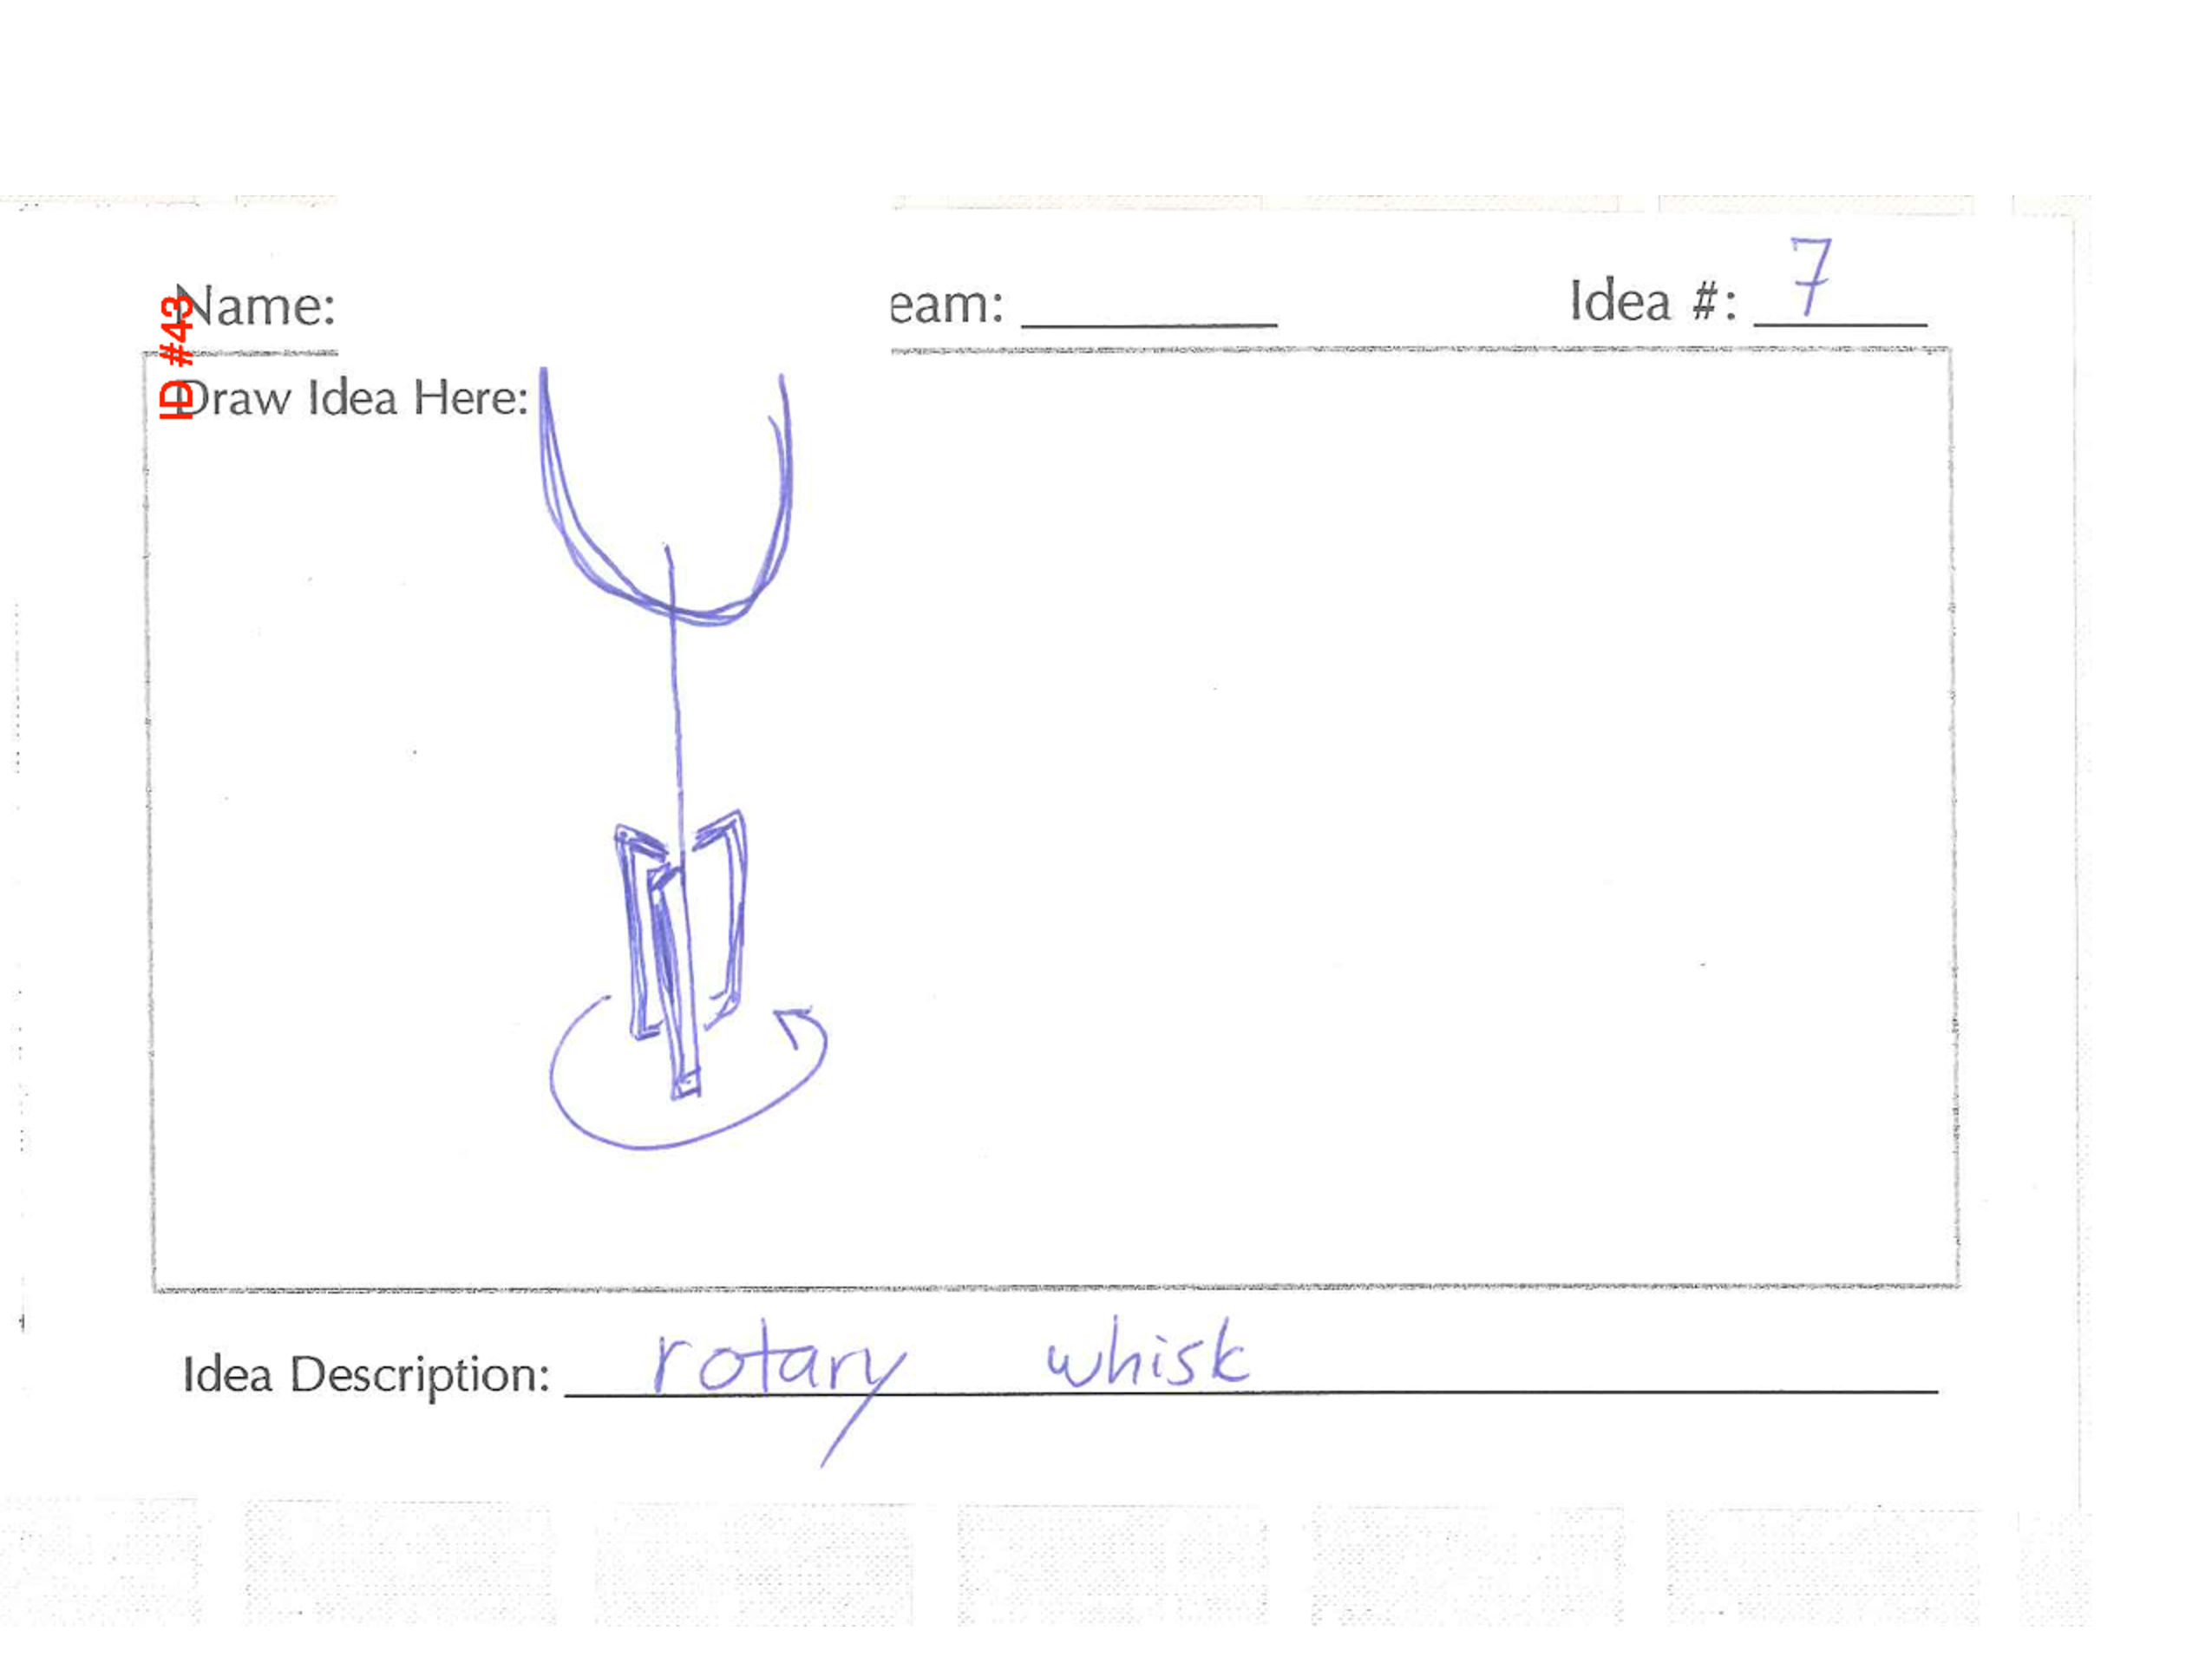 Name: eam: Idea #: 7
ID #43
Draw Idea Here:
Idea Description: rotary whisk